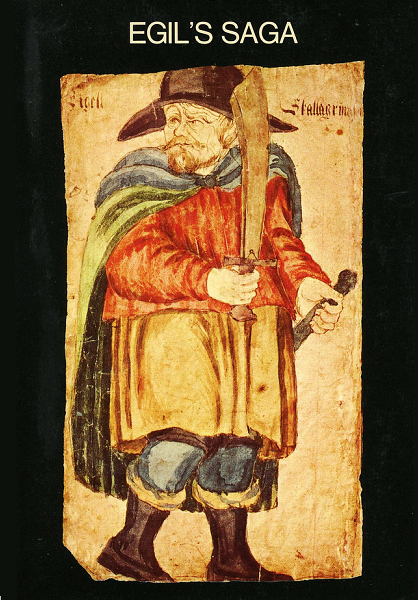 EGIL'S SAGA
Egell Skallagrims